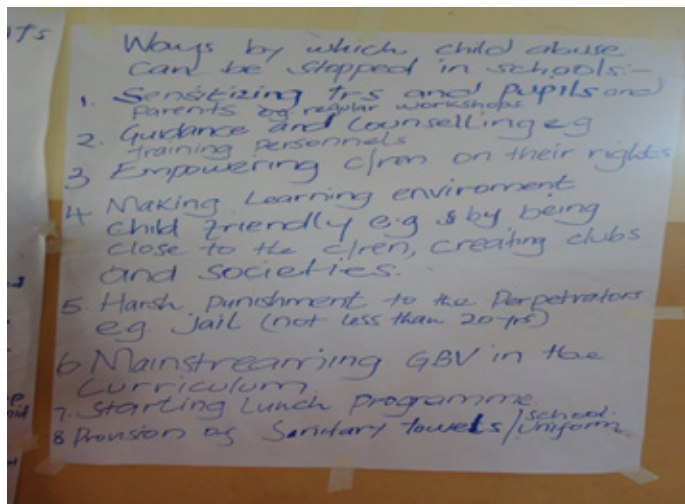 nts
Ways by which child abuse
can be stopped in schools:-
1. Sensitizing trs and pupils and
parents eg regular workshops
2. Guidance and counselling e.g
training personnels
3 Empowering c/ren on their rights
4 Making Learning enviroment
child friendly e.g by being
close to the c/ren, creating clubs
and societies.
5. Harsh punishment to the Perpetrators
e.g. Jail (not less than 20 yrs)
6 Mainstreaming GBV in the
Curriculum
7. Starting Lunch programme.
8 Provision of Sanitary towels/school
uniform